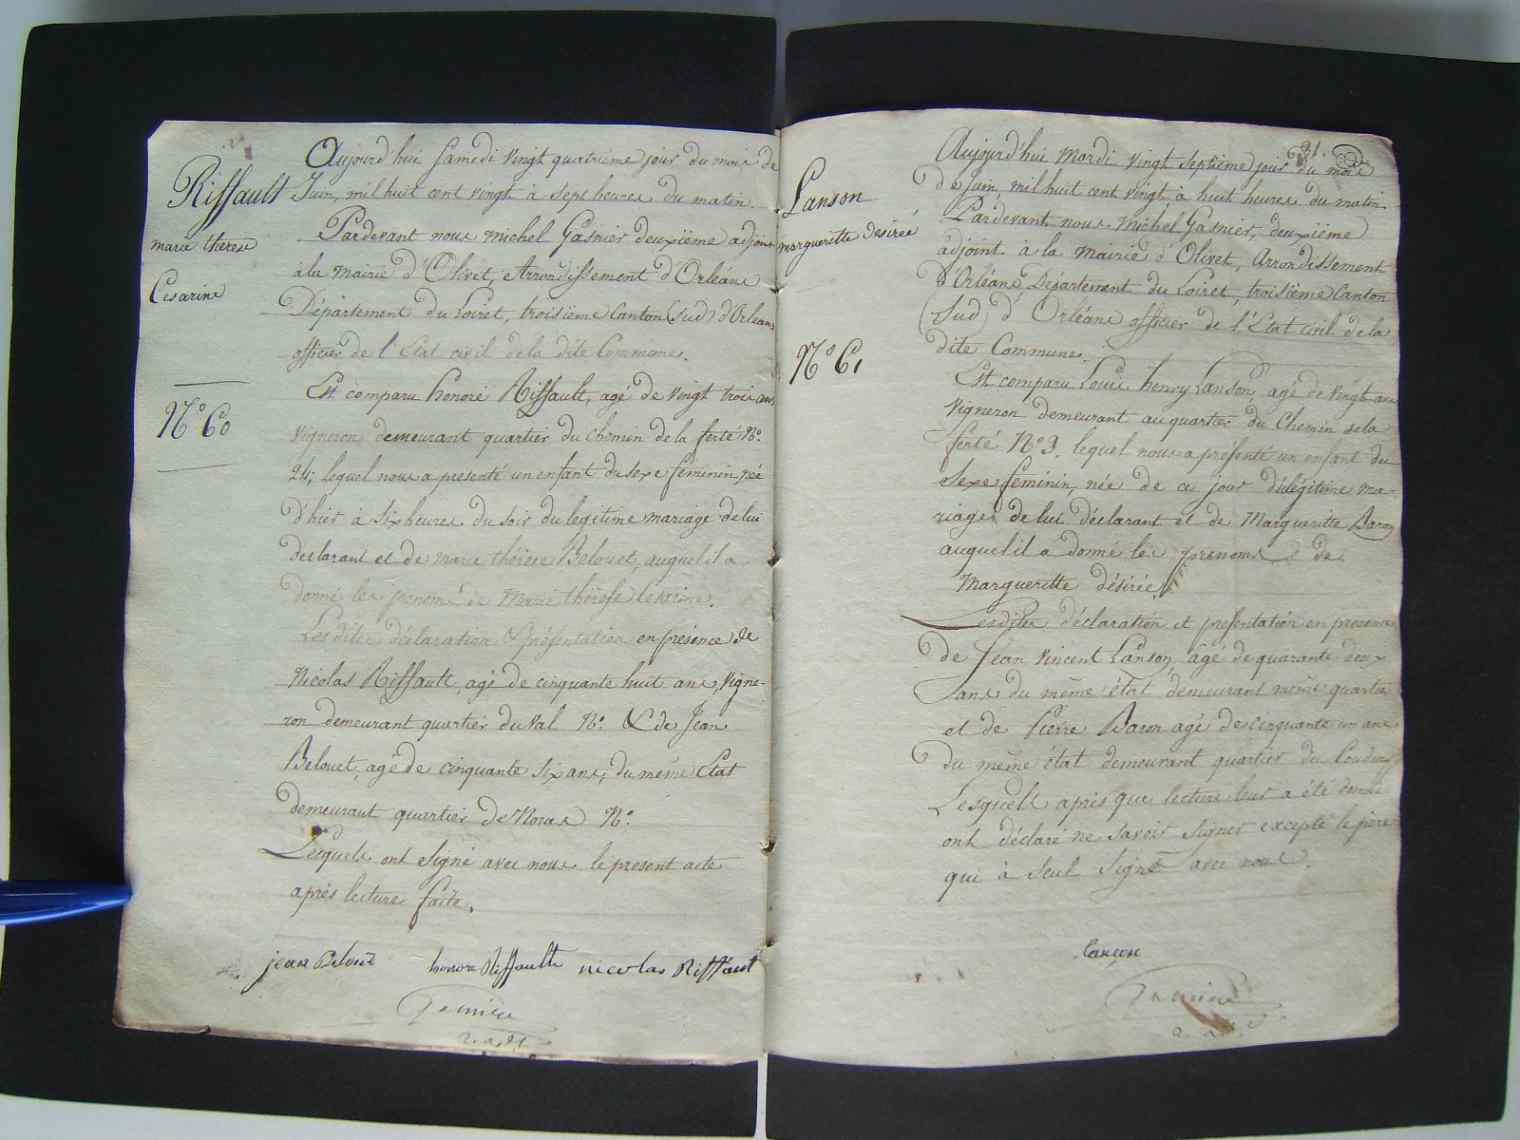 Riffault
marie therese
Cesarine
N° 60
Aujourd'hui Samedi vingt quatrieme jour du mois de
Juin, mil huit cent vingt à sept heures du matin.
Pardevant nous Michel Gasnier deuxiième adjoint
à la Mairie d'Olivet, Arrondissement d'Orléans
Département du Loiret, troisième Canton (Sud) d'Orleans
officier de l'Etat civil de la dite Commune.
Est comparu honoré Riffault, agé de vingt trois ans
vigneron demeurant quartier du chemin de la ferté N°.
24, lequel nous a presenté un enfant du sexe féminin née
d'hier à six heures du soir du legitime mariage de lui
declarant et de marie thérèse Belouet, auquel il a
donné les prenoms de Marie thérèse Cesarine.
Lesdites déclaration & présentation en présence de
Nicolas Riffault, agé de cinquante huit ans, vigne-
ron demeurant quartier du val N°. & de Jean
Belouet, agé de cinquante six ans, du même Etat
demeurant quartier de Noras N°.
Lesquels ont signé avec nous le present acte
après lecture faite.
jean Belouet honore Riffault nicolas Riffaut
Gasnier
Lanson
margueritte desirée
N° 61
21.
Aujourd'hui Mardi vingt Septième jour du mois
de Juin, mil huit cent vingt à huit heures du matin
Pardevant nous Michel Gasnier, deuxiième
adjoint à la Mairie d'Olivet, Arrondissement
d'Orléans Département du Loiret, troisième Canton
(Sud) d'Orléans officier de l'Etat civil de la
dite Commune.
Est comparu Louis henry Lanson, agé de vingt ans
vigneron demeurant au quartier du Chemin de la
ferté N° 3. lequel nous a présenté un enfant du
Sexe féminin, née de ce jour du légitime ma-
riage de lui déclarant et de Margueritte Baron
auquel il a donné les prenoms de
Margueritte désirée.
Lesdites déclaration et présentation en presence
de Jean Vincent Lanson, âgé de quarante deux
ans du même état demeurant même quartier
et de Pierre Baron agé de cinquante un ans
du même état demeurant quartier du
Lesquels après que lecture leur a été donné
ont déclaré ne savoir signer excepté le père
qui à seul signé avec nous.
lançon
Gasnier